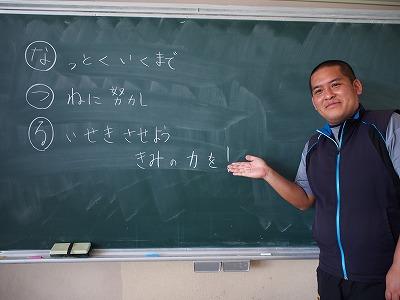 なっとくいくまで
つねに努力し
るいせきさせよう
きみの力を!